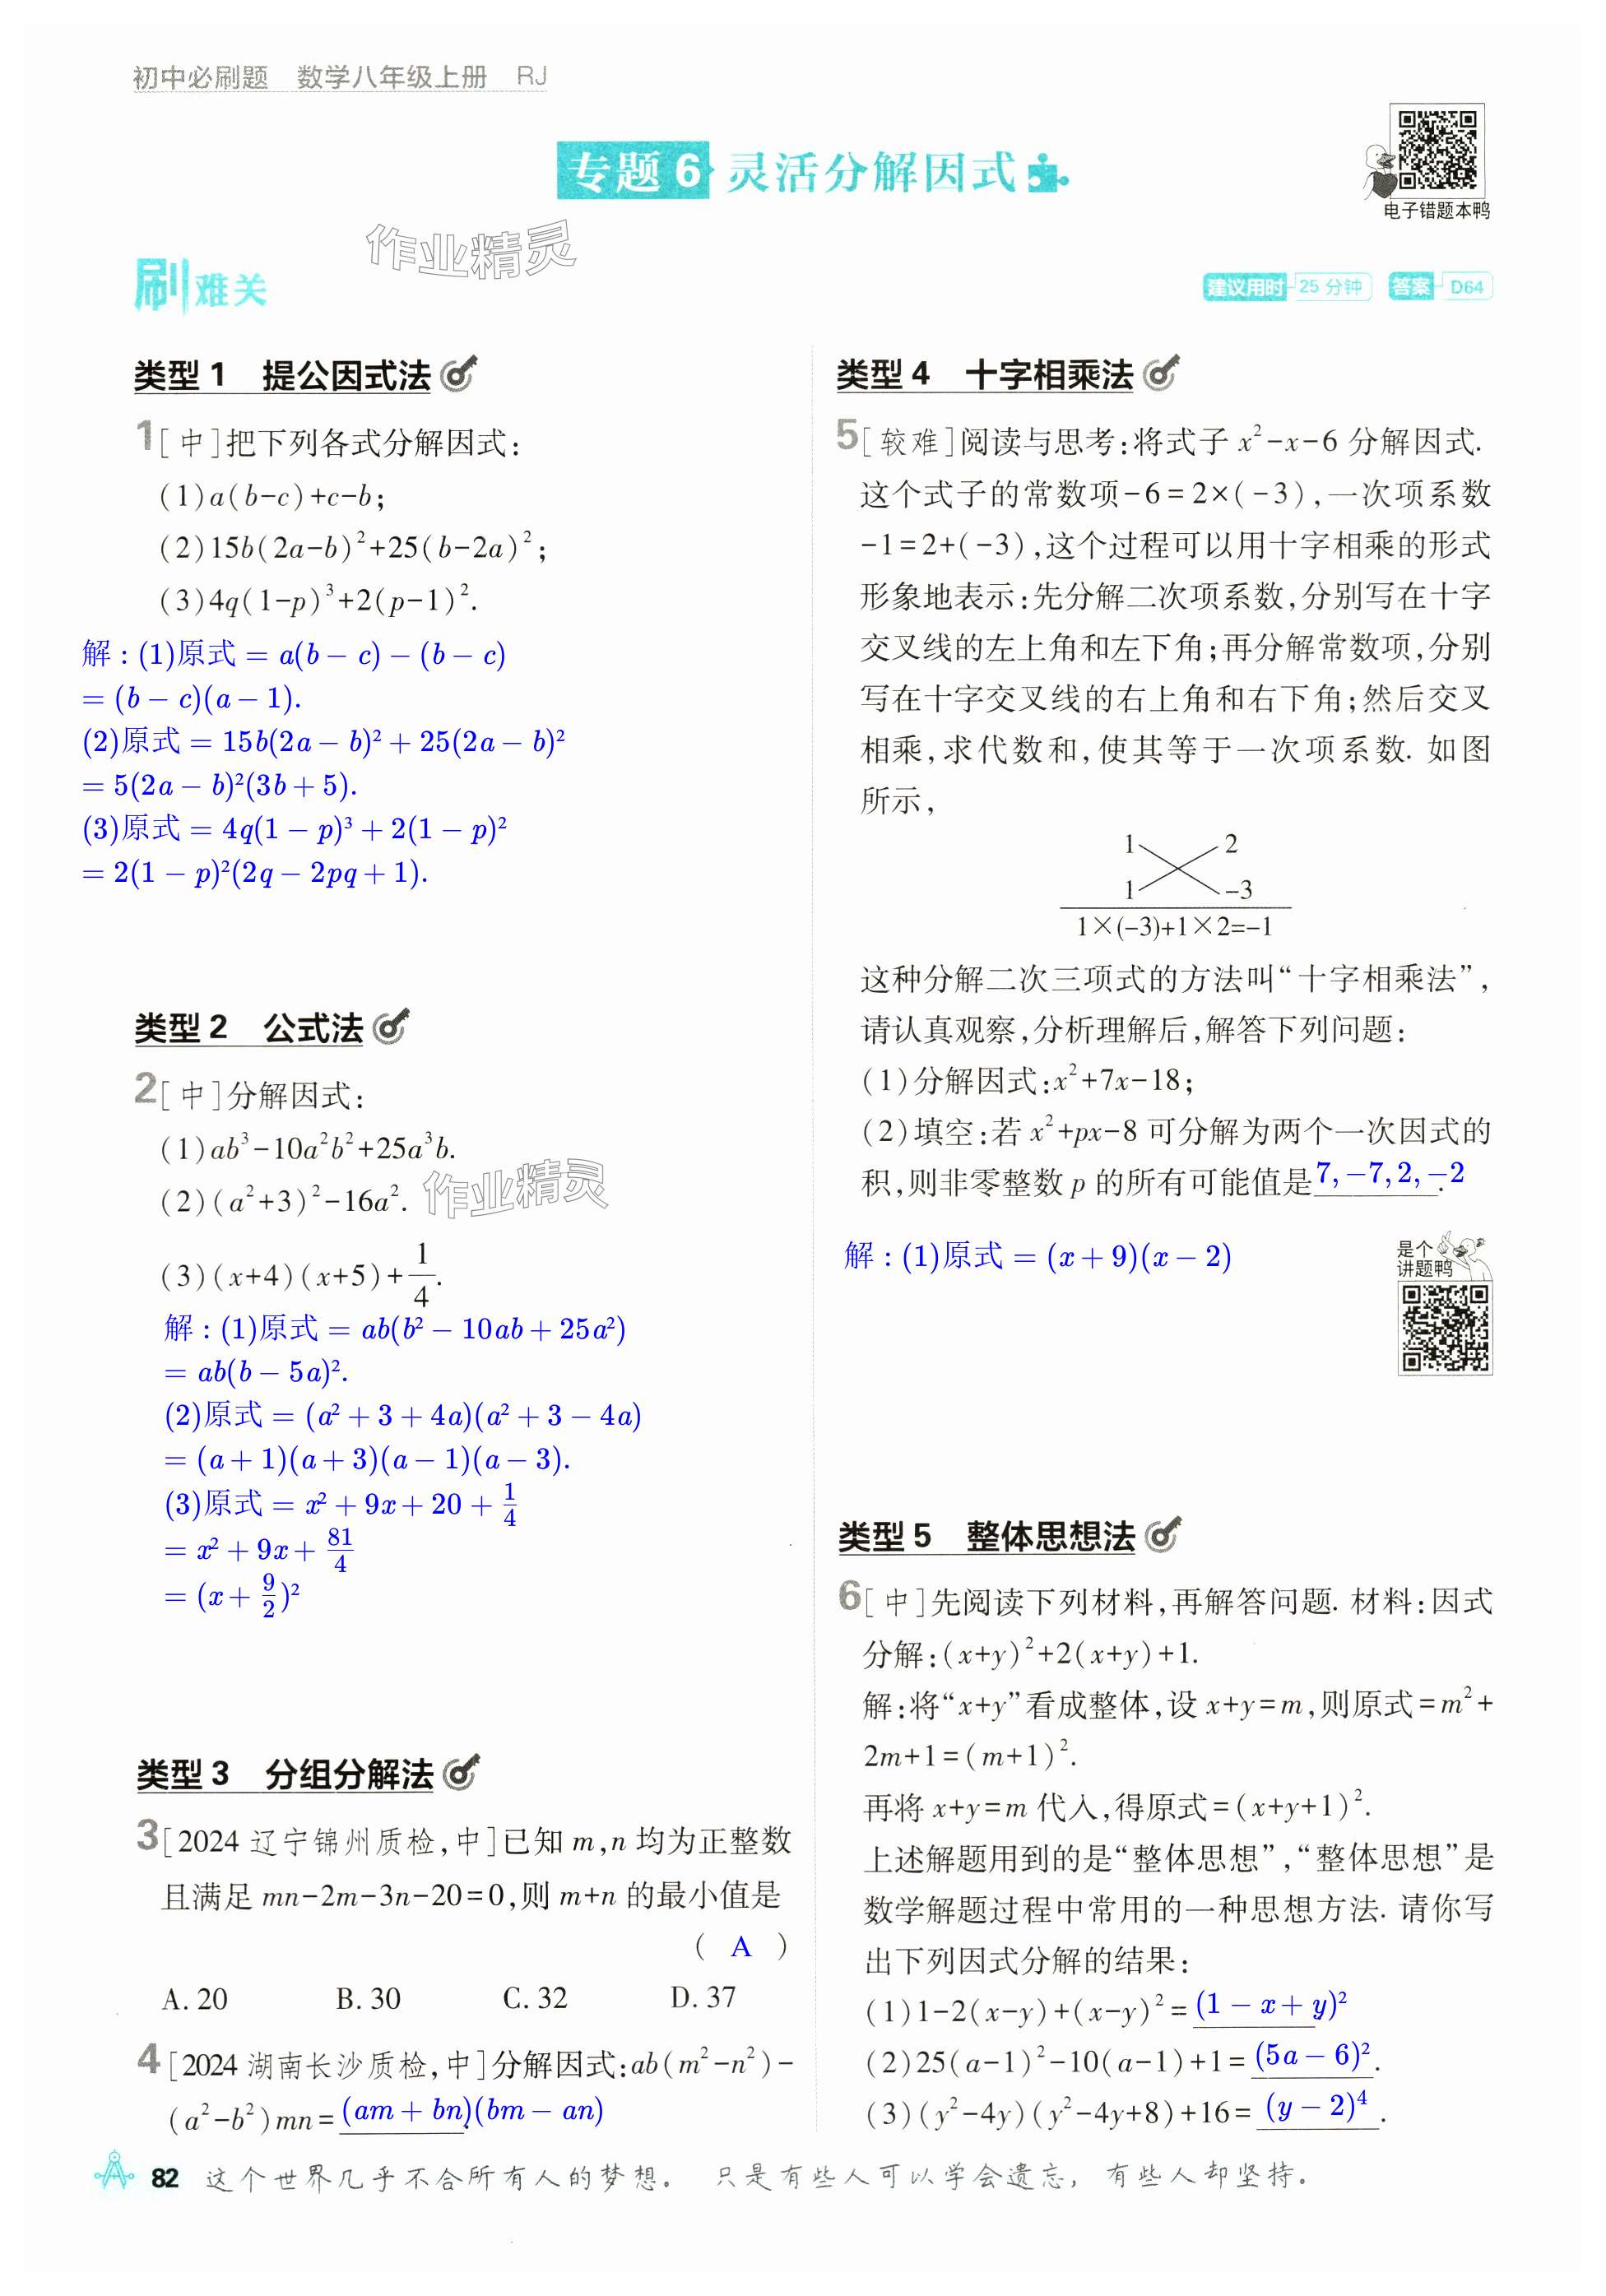 初中必刷题 数学八年级上册 RJ
专题6 灵活分解因式
电子错题本鸭
作业精灵
刷难关
建议用时 25分钟 答案 D64
类型1 提公因式法
1[中]把下列各式分解因式:
(1)a(b-c)+c-b;
(2)15b(2a-b)²+25(b-2a)²;
(3)4q(1-p)³+2(p-1)².
解:(1)原式 = a(b − c) − (b − c)
= (b − c)(a − 1).
(2)原式 = 15b(2a − b)² + 25(2a − b)²
= 5(2a − b)²(3b + 5).
(3)原式 = 4q(1 − p)³ + 2(1 − p)²
= 2(1 − p)²(2q − 2pq + 1).
类型2 公式法
2[中]分解因式:
(1)ab³-10a²b²+25a³b.
(2)(a²+3)²-16a².
作业精灵
(3)(x+4)(x+5)+1/4.
解:(1)原式 = ab(b² − 10ab + 25a²)
= ab(b − 5a)².
(2)原式 = (a² + 3 + 4a)(a² + 3 − 4a)
= (a + 1)(a + 3)(a − 1)(a − 3).
(3)原式 = x² + 9x + 20 + 1/4
= x² + 9x + 81/4
= (x + 9/2)²
类型3 分组分解法
3[2024辽宁锦州质检,中]已知m,n均为正整数
且满足mn-2m-3n-20=0,则m+n的最小值是
( A )
A.20 B.30 C.32 D.37
4[2024湖南长沙质检,中]分解因式:ab(m²-n²)-
(a²-b²)mn=(am + bn)(bm − an).
类型4 十字相乘法
5[较难]阅读与思考:将式子x²-x-6分解因式.
这个式子的常数项-6=2×(-3),一次项系数
-1=2+(-3),这个过程可以用十字相乘的形式
形象地表示:先分解二次项系数,分别写在十字
交叉线的左上角和左下角;再分解常数项,分别
写在十字交叉线的右上角和右下角;然后交叉
相乘,求代数和,使其等于一次项系数.如图
所示,
1 2
1 -3
1×(-3)+1×2=-1
这种分解二次三项式的方法叫“十字相乘法”,
请认真观察,分析理解后,解答下列问题:
(1)分解因式:x²+7x-18;
(2)填空:若x²+px-8可分解为两个一次因式的
积,则非零整数p的所有可能值是7, −7, 2, −2.
解:(1)原式 = (x + 9)(x − 2)
是个
讲题鸭
类型5 整体思想法
6[中]先阅读下列材料,再解答问题.材料:因式
分解:(x+y)²+2(x+y)+1.
解:将“x+y”看成整体,设x+y=m,则原式=m²+
2m+1=(m+1)².
再将x+y=m代入,得原式=(x+y+1)².
上述解题用到的是“整体思想”,“整体思想”是
数学解题过程中常用的一种思想方法.请你写
出下列因式分解的结果:
(1)1-2(x-y)+(x-y)²=(1 − x + y)²
(2)25(a-1)²-10(a-1)+1=(5a − 6)².
(3)(y²-4y)(y²-4y+8)+16=(y − 2)⁴.
82 这个世界几乎不合所有人的梦想。 只是有些人可以学会遗忘,有些人却坚持。